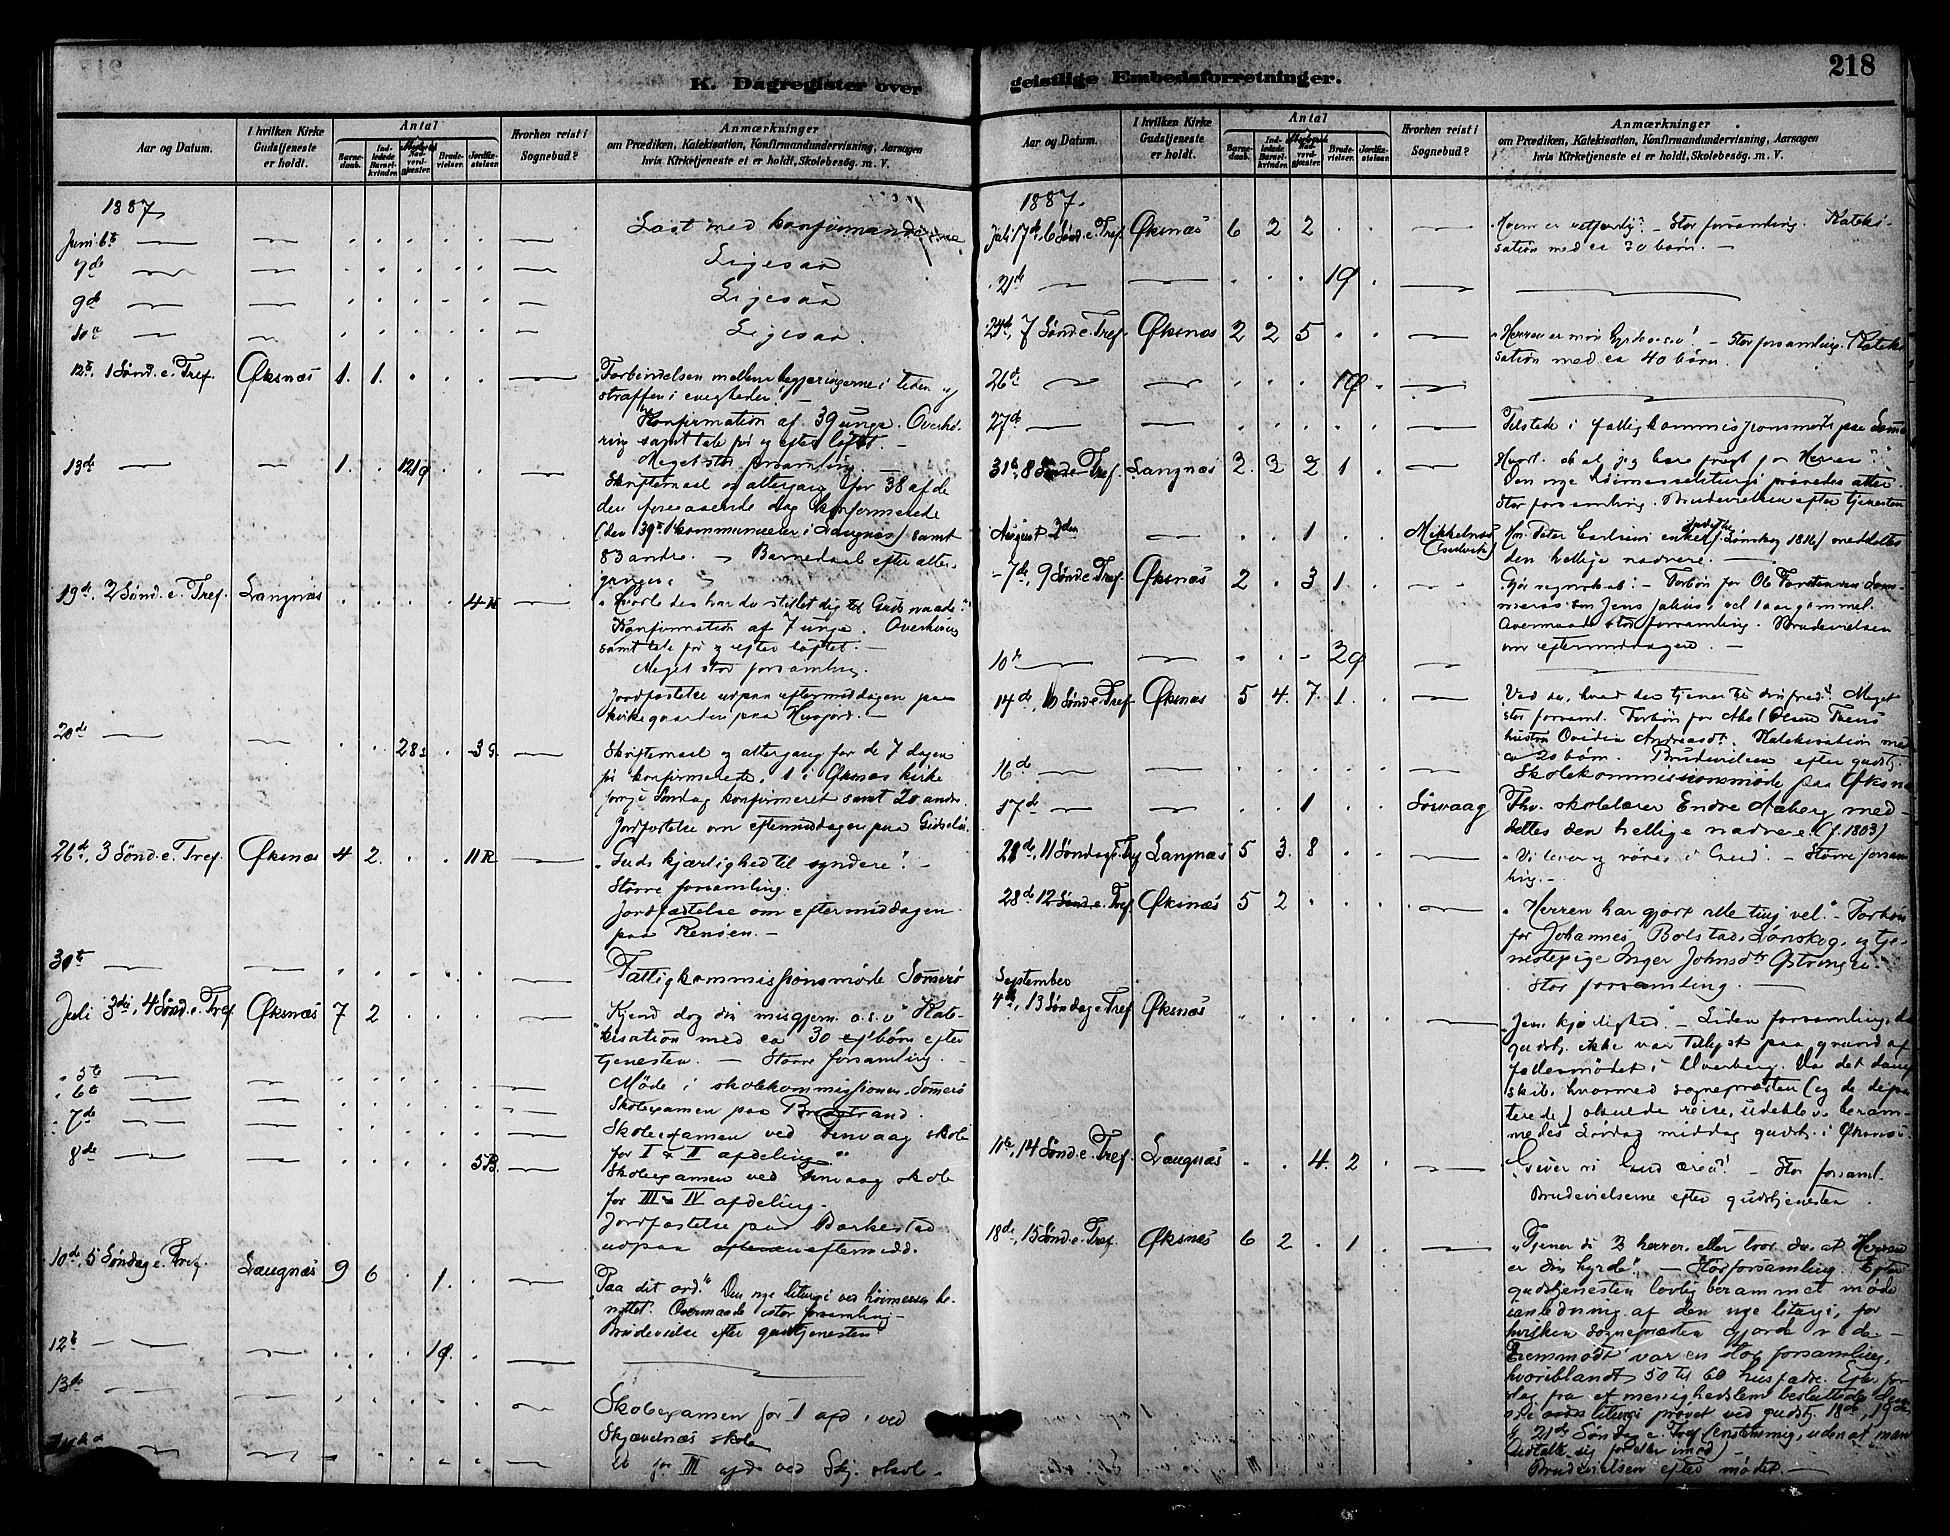 218
K. Dagregister over
geistlige Embedsforretninger.
Aar og Datum.
I hvilken Kirke Gudstjeneste er holdt.
Antal
Barnedaab.
Indledede Barselkvinder.
Nadverdgjæster.
Brudevielser.
Jordfæstelser.
Hvorhen reist i Sognebud?
Anmærkninger
om Prædiken, Katekisation, Konfirmandundervisning, Aarsagen
hvis Kirketjeneste ei er holdt, Skolebesög. m. V.
1887
Juni 6te Læst med konfirmanderne
7de Ligesaa
9de Ligesaa
10de Ligesaa
12te, 1 Sønd. e. Tref. Øksnæs 1. 1. "Forbindelsen mellem begjæringerne i tiden og
straffen i evigheden".
Konfirmation af 39 unge. Overhø-
ring samt tale før og efter løftet.
Meget stor forsamling.
13de 1. 121 Skriftemaal og altergang for 38 af de
den foregaaende dag konfirmerede
(den 39te kommunicerer i Langnæs) samt
83 andre. Barnedaab efter alter-
gangen.
19de, 2 Sønd. e. Tref. Langnæs 4 "Hvorledes har du stillet dig til Guds naade?"
Konfirmation af 7 unge. Overhøring
samt tale før og efter løftet.
Meget stor forsamling.
Jordfæstelse udpaa eftermiddagen paa
kirkegaarden paa
20de 28 3 Skriftemaal og altergang for de 7 dagen
før konfirmerede, 1 i Øksnæs kirke
forrige Søndag konfirmeret samt 20 andre.
Jordfæstelse om eftermiddagen paa
26de, 3 Sønd. e. Tref. Øksnæs 4 2. 11 "Guds kjærlighed til syndere".
Større forsamling.
Jordfæstelse om eftermiddagen
paa
30te Fattigkommissionsmøde Sommerø
Juli 3die, 4 Sønd. e. Tref. Øksnæs 7 2 "Kjend dog din misgjern. o.s.v" Kate-
kisation med ca 30 børn efter
tjenesten. Større forsamling.
5te Møde i skolekommissionen, Sommerø
6te Skoleexamen paa
7de Skoleexamen ved skole
for I & II afdeling.
8de 5 Skoleexamen ved skole
for III & IV afdeling.
Jordfæstelse paa Barkestad
udpaa eftermidd.
10de, 5 Søndag e. Tref. Langnæs 9 6 1. "Paa dit ord". Den nye liturgi ved høimessen be-
nyttet. Overmaade stor forsamling.
Brudevielse efter gudstjenesten
12te 1
13de Skoleexamen for I afd. ved
Skjævelnæs skole
for III afd. ved Skj. skole.
Aar og Datum.
I hvilken Kirke Gudstjeneste er holdt.
Antal
Barnedaab.
Indledede Barselkvinder.
Nadverdgjæster.
Brudevielser.
Jordfæstelser.
Hvorhen reist i Sognebud?
Anmærkninger
om Prædiken, Katekisation, Konfirmandundervisning, Aarsagen
hvis Kirketjeneste ei er holdt, Skolebesög. m. V.
1887.
Juli 17de, 6 Sønd. e. Tref. Øksnæs 6 2 2 Stor forsamling. Kateki-
sation med ca 30 børn.
21de 1
24de, 7 Sønd. e. Tref. Øksnæs 2 2 5 "Herren er min hyrde o.s.v.". Stor forsamling. Kateki-
sation med ca 40 børn.
26de 1
27de Tilstede i fattigkommissionsmøde paa
31te, 8 Sønd. e. Tref. Langnæs 2. 2 1 "Hvort skal jeg bære frugt for Herren".
Den nye høimesseliturgi prøvedes atter
Stor forsamling. Brudevielsen efter tjenesten
August 2den 1 Mikkelnæs Peter Carlsens enke meddeltes
den hellige nadvere.
7de, 9 Sønd. e. Tref. Øksnæs 2 3 1 "Gjør regnskab". Forbøn for Ole
søn Jens Julius, 1 aar gammel.
Overmaade stor forsamling. Brudevielsen
om eftermiddagen.
10de 2
14de, 10 Sønd. e. Tref. Øksnæs 5 4. 7. 1. "Ved du, hvad der tjener til din fred". Meget
stor forsaml. Forbøn for Abel Olsen
hustru Ovidia Andreasdt. Katekisation med
ca 20 børn. Brudevielsen efter gudstj.
16de Skolekommissionsmøde paa Øksnæs
17de 1 Sørvaag Fhv. skolelærer Endre Aaberg med-
deltes den hellige nadvere. (f. 1803)
21de, 11 Søndag e. Tref. Langnæs 5 3. 8 "Vi lever og røres i Gud". Større forsam-
ling.
28de 12 Sønd. e. Tref. Øksnæs 5 2 "Herren har gjort alle ting vel". Forbøn
for Johannes Bolstad, Lønskog, og tje-
nestepige Inger Johnsdt.
Stor forsamling.
September
4de, 13 Søndag e. Tref. Øksnæs kjærlighed". Liden forsamling, da
gudstj. ikke var tillyst paa grund af
fællesmødet i Da det damp-
skib, hvormed sognepresten (og de depu-
terede) skulde reise, udeblev, beram-
medes Lørdag middag gudstj. i Øksnæs.
11te, 14 Sønd. e. Tref. Langnæs 4. 2 "Giver vi Gud æren". Stor forsaml.
Brudevielserne efter gudstjenesten
18de, 15 Sønd. e. Tref. Øksnæs 6 2 1 "Tjener du 2 herrer, eller tror du, at Herren
er din hyrde". Stor forsamling. Efter
gudstjenesten lovlig berammet møde
i anledning af den nye liturgi, for
hvilken sognepresten gjorde rede.
Fremmødt var en stor forsamling,
hvoriblandt 50 til 60 husfædre. Efter for-
slag fra et menighedslem besluttedes den
nye liturgi prøvet ved gudstj. 18de, 19de
& 21de Søndag e. Tref. (enstemmig, uden at man
udtalte sig for eller imod)
Brudevielsen efter mødet.